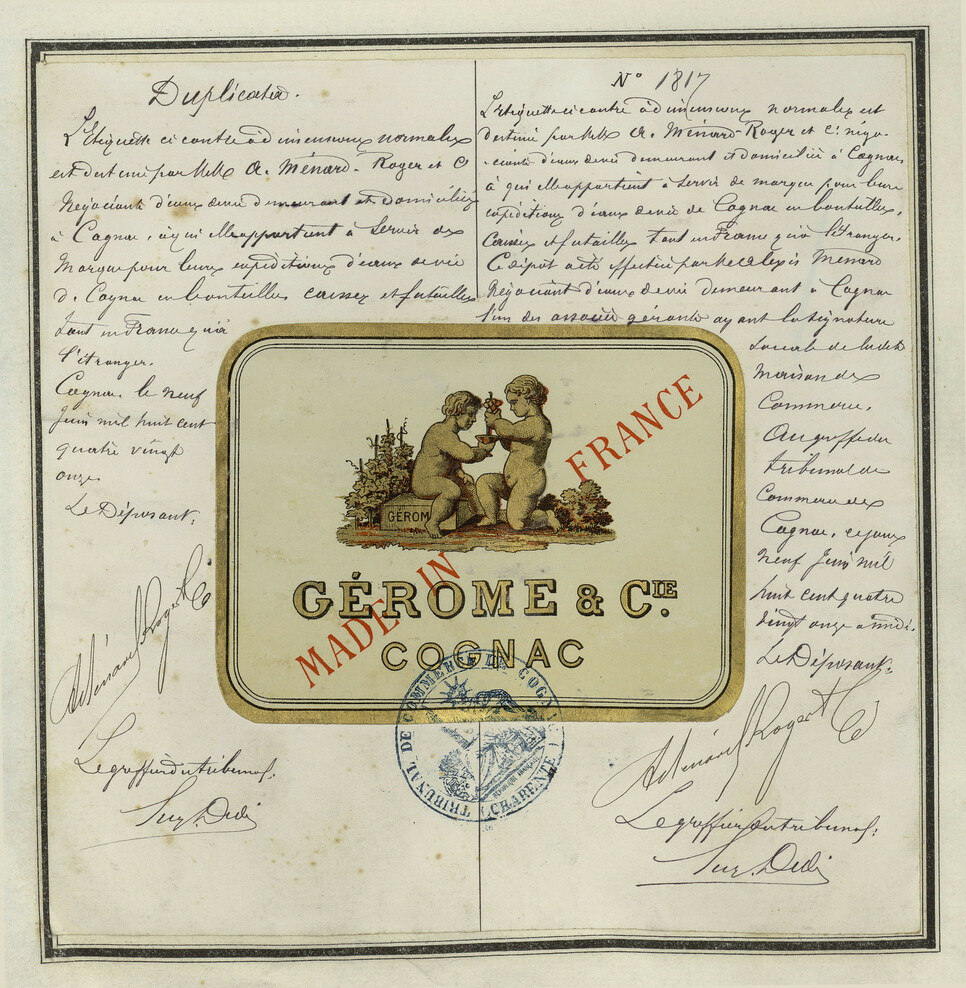 Duplicata.
L'Etiquette ci contre à dimensions normales
est destinée par MM A. Ménard-Roger et Cie
Négociants d'eaux de vie demeurant et domiciliés
à Cognac, à qui elle appartient à servir de
Marque pour leurs expéditions d'eaux de vie
de Cognac en bouteilles caisses et futailles
tant en France qu'à
l'étranger.
Cognac, le neuf
Juin mil huit cent
quatre vingt
onze
Le Déposant:
A Ménard Roger et Cie
Le greffier du tribunal:
No 1817
L'Etiquette ci contre à dimensions normales est
destinée par MM A. Ménard-Roger et Cie négo-
-ciants d'eaux de vie demeurant et domiciliés à Cognac,
à qui elle appartient à servir de marque pour leurs
expéditions d'eaux de vie de Cognac en bouteilles,
Caisses et futailles tant en France qu'à l'étranger.
Ce dépôt a été effectué par Alexis Ménard
Négociant d'eaux de vie demeurant à Cognac
l'un des associés gérants ayant la signature
sociale de ladite
Maison de
Commerce.
Au greffe du
tribunal de
Commerce de
Cognac, ce jour
neuf Juin mil
huit cent quatre
vingt onze à midi.
Le Déposant:
A Ménard Roger et Cie
Le greffier du tribunal:
GÉROM
MADE IN FRANCE
GÉROME & CIE
COGNAC
TRIBUNAL DE COMMERCE DE COGNAC
(CHARENTE)